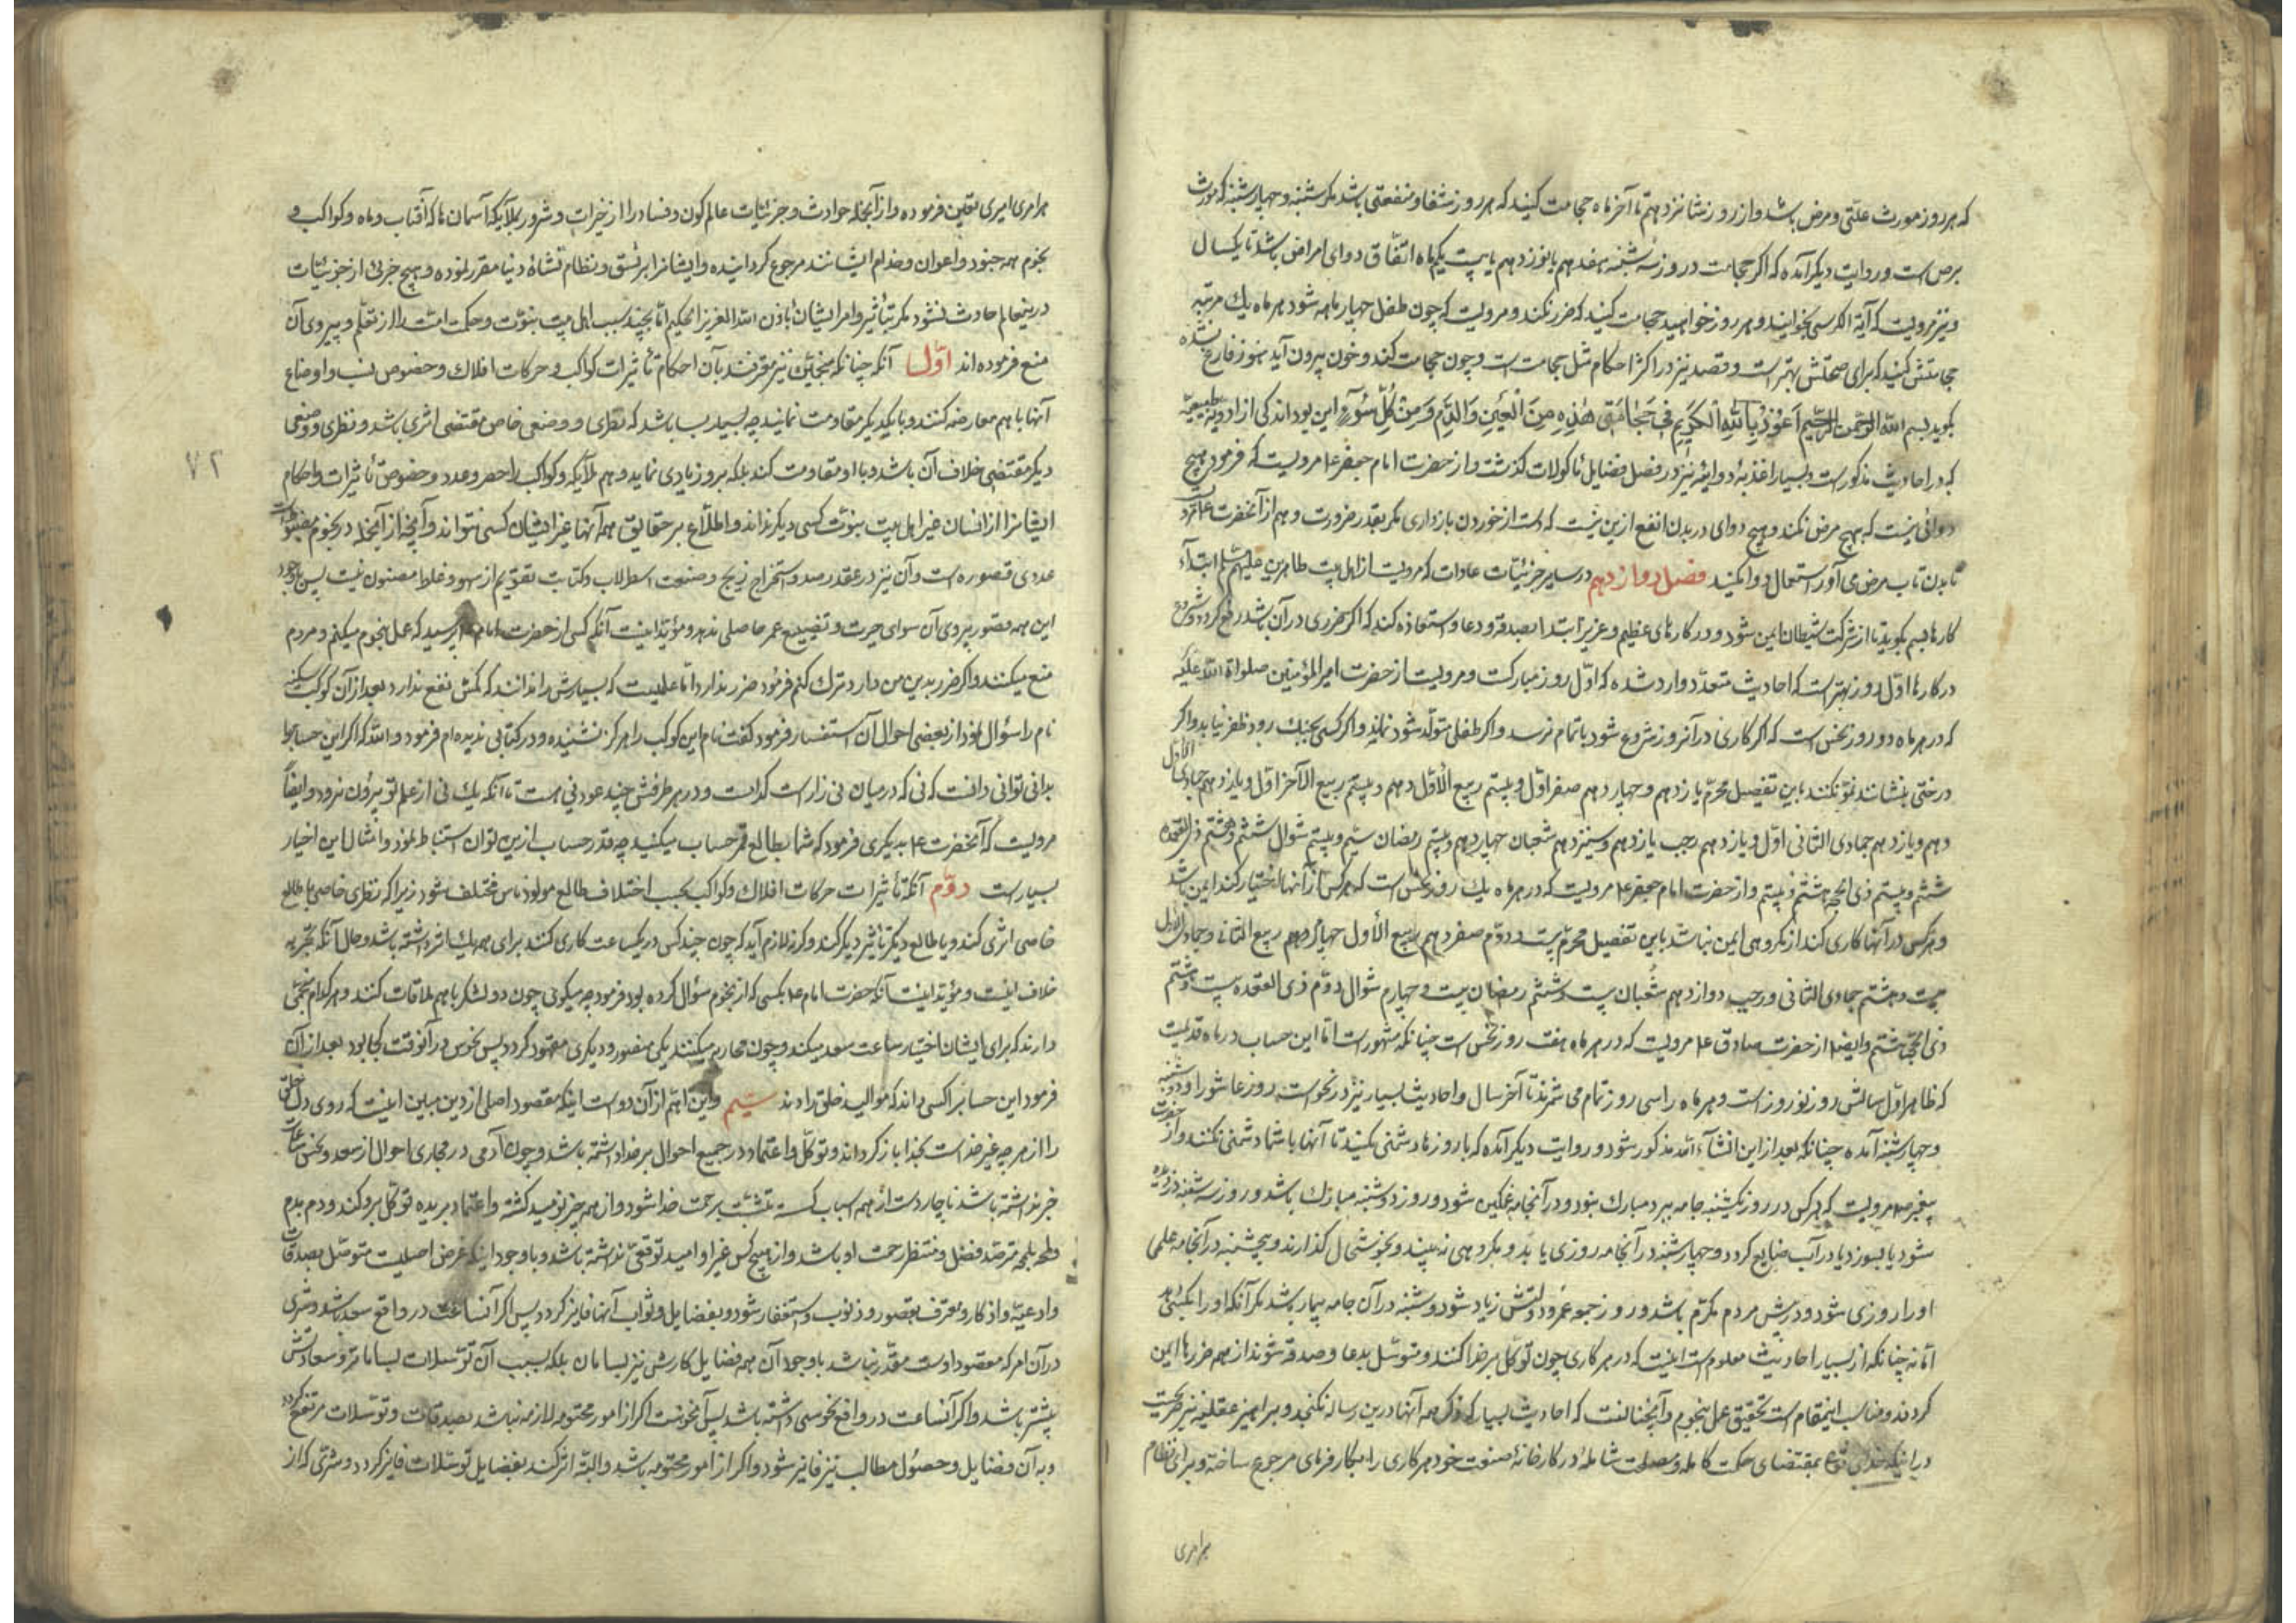 که هر روز مورث علتی و مرض باشد و از روز شانزدهم تا آخر ماه حجامت کنید که هر روز شفا و منفعتی باشد مکر شنبه و چهارشنبه که مورث
برص است و روایت دیکر آمده که اکر حجامت در روز سه شنبه هفدهم یا نوزدهم یا بیست یکم ماه اتفاق دوای امراض باشد تا یکسال
و نیز مرویست که آیة الکرسی بخوانید و هر روز خواهید حجامت کنید که ضرر نکند و مرویست که چون طفل چهار ماهه شود هر ماه یك مرتبه
حجامتش کنید که برای صحتش بهتر است و فصد نیز در اکثر احکام مثل حجامت است و چون حجامت کند و خون بیرون آید هنوز فارغ نشده
بکوید بسم الله الرحمن الرحیم اَعُوذُ بِاللهِ الْکَریمِ فی حَجامَتی هٰذِهِ مِنَ الْعَیْنِ وَالدَّمِ وَمِنْ کُلِّ سُوءٍ این بود اندکی از ادویه طبیعیه
که در احادیث مذکور است و بسیار اغذیهٔ دوائیه نیز در فصل فضایل ماکولات کذشت و از حضرت امام جعفر ع مرویست که فرمود هیچ
دوائی نیست که تهیج مرض نکند و هیچ دوای در بدن انفع ازین نیست که دست از خوردن بازداری مکر بقدر ضرورت و هم از آنحضرت ع
تا بدن تاب مرض می آورد استعمال دوا نکنید فصل دوازدهم در سایر جزئیّات عادات که مرویست از اهل بیت طاهرین علیهم السلم ابتداء
کارها بسم بکوید تا از شرکت شیطان ایمن شود و در کارهای عظیم و عزیز ابتدا بصدقه و دعا و استعاذه کند که اکر ضرری در آن باشد رفع کردد و شروع
در کارها اول روز بهتر است که احادیث متعدد وارد شده که اول روز مبارکست و مرویست از حضرت امیر المؤمنین صلواة الله علیه
که در هر ماه دو روز نحس است که اکر کاری در آنروز شروع شود باتمام نرسد و اکر طفلی متولد شود نماند و اکر کسی بجنك رود ظفر نیابد و اکر
درختی بنشانند نمو نکند باین تفصیل محرم یازدهم و چهاردهم صفر اول و بیستم ربیع الاول دهم و بیستم ربیع الآخر اول و یازدهم جمادی الاول
دهم و یازدهم جمادی الثانی اول و یازدهم رجب یازدهم و سیزدهم شعبان چهاردهم و بیستم رمضان سیم و بیستم شوال ششم و هشتم ذی القعده
ششم و بیستم ذی الحجه هشتم و بیستم و از حضرت امام جعفر ع مرویست که در هر ماه یك روز نحس است که هر کس از آنها اختیار کند ایمن باشد
و هر کس در آنها کاری کند از مکروهی ایمن نباشد باین تفصیل محرم بیست و دوم صفر دهم ربیع الاول چهاردهم ربیع الثانی و جمادی الاول
بیست و هشتم جمادی الثانی و رجب دوازدهم شعبان بیست و ششم رمضان بیست و چهارم شوال دوم ذی القعده بیست و هشتم
ذی الحجة هشتم و ایضا از حضرت صادق ع مرویست که در هر ماه هفت روز نحس است چنانکه مشهور است اما این حساب در ماه قدیمست
که ظاهرا اول سالش روز نوروز است و هر ماه را سی روز تمام می شمرند تا آخر سال و احادیث بسیار نیز در نحوست روز عاشورا و دوشنبه
و چهارشنبه آمده چنانکه بعد ازین انشاء الله مذکور شود و روایت دیکر آمده که با روزها دشمنی نکنید تا آنها با شما دشمنی نکنند و از حضرت
پیغمبر ص مرویست که هر کس در روز یکشنبه جامه ببرد مبارك نبود و در آنجامه غمکین شود و روز دوشنبه مبارك باشد و روز سه شنبه دزدیده
شود یا بسوزد یا در آب ضایع کردد و چهارشنبه در آنجامه روزی یابد و مکروهی نه بیند و بخوشحال کذارند و پنجشنبه در آنجامه علمی
او را روزی شود و در پیش مردم مکرم باشد و روز جمعه عمر و دولتش زیاد شود و شنبه در آن جامه بیمار باشد مکر آنکه او را
اما نه چنانکه از بسیار احادیث معلوم است اینست که در هر کاری چون توکل بر خدا کنند و متوسل بدعا و صدقه شوند از همه ضررها ایمن
کردند و مناسب اینمقام است تحقیق عمل بنجوم و آنچنانست که احادیث بسیار که ذکر همه آنها درین رساله نکنجد و براهین عقلیه نیز صریحست
در اینکه خدای تع بمقتضای حکمت کامله و مصلحت شامله در کارخانهٔ صنعت خود هر کاری را بکارفرمای مرجوع ساخته و برای نظام
هر امری
هر امری امیری تعیین فرموده و از آنجمله حوادث و جزئیات عالم کون و فساد را از خیرات و شرور بملایکه آسمان ها که آفتاب و ماه و کواکب و
نجوم همه جنود و اعوان و خدام ایشانند مرجوع کردانیده و ایشانرا بر نسق و نظام نشاهٔ دنیا مقرر نموده و هیچ جزئی از جزئیات
درینعالم حادث نشود مکر بتأثیر و امر ایشان باذن الله العزیز الحکیم اما بچند سبب اهل بیت نبوت و حکمت امت را از تعلم و پیروی آن
منع فرموده اند اول آنکه چنانکه منجمین نیز معترفند بآن احکام تأثیرات کواکب و حرکات افلاك و خصوص نسب و اوضاع
آنها با هم معارضه کنند و با یکدیکر مقاومت نمایند چه بسیار سبب باشد که نظری و وضعی خاص مقتضی اثری باشد و نظری و وضعی
دیکر مقتضی خلاف آن باشد و با او مقاومت کند بلکه بروز یادی نماید و هم ملایکه و کواکب را حصر و عدد و خصوص تأثیرات و احکام
ایشانرا از انسان غیر اهل بیت نبوت کسی دیکر نداند و اطلاع بر حقایق همه آنها غیر ایشان کسی نتواند و آنچه از آنجمله در نجوم مضبوطست
عددی قصوره است و آن نیز در عقد رصد و استخراج زیج و صنعت اسطرلاب و کتابت تقویم از سهو و غلط مصئون نیست پس با وجود
این همه قصور پیروی آن سوای حیرت و تضییع عمر حاصلی ندهد و مؤید اینست آنکه کسی از حضرت امام پرسید که عمل بنجوم میکنم و مردم
منع میکنند و اکر ضرر بدین من دارد ترك کنم فرمود ضرر ندارد اما علمیست که بسیارش را ندانند که کمش نفع ندارد بعد از آن کوکب سکینه
نام را سؤال نمود از بعضی احوال آن استفسار فرمود کفت نام این کوکب را هرکز نشنیده و در کتابی ندیده ام فرمود والله که اکر این حساب را
بدانی توانی دانست که نی که در میان نی زار است کدامست و در هر طرفش چند عود نی هست تا آنکه یك نی از علم تو بیرون نرود و ایضاً
مرویست که آنحضرت ع بدیکری فرمود که شما بطالع قمر حساب میکنید چه قدر حساب ازین توان استنباط نمود و امثال این اخبار
بسیار است دوم آنکه تأثیرات حرکات افلاك و کواکب بحسب اختلاف طالع مولود ناس مختلف شود زیرا که نظری خاص با طالع
خاصی اثری کند و با طالع دیکر تأثیر دیکر کند و کرنه لازم آید که چون چند کس در یکساعت کاری کنند برای همه یك اثر داشته باشد و حال آنکه تجربه
خلاف اینست و مؤید اینست آنکه حضرت امام ع بکسی که از نجوم سؤال کرده بود فرمود چه میکوئی چون دو لشکر با هم ملاقات کنند و هر کدام منجمی
دارند که برای ایشان اختیار ساعت سعد میکند و چون محاربه میکنند یکی منصور و دیکری مقهور کردد پس نحوس در آنوقت کجا بود بعد از آن
فرمود این حساب را کسی داند که موالید خلق را داند سیم و این اهم از آن دو است اینکه مقصود اصلی از دین مبین اینست که روی دل خلق
را از هر چه غیر خداست بخدا باز کردانند و توکل و اعتماد در جمیع احوال بر خدا داشته باشد و چون آدمی در مجاری احوال از سعد و نحس ساعات
خبر نداشته باشد ناچار دست از همه اسباب کسسته متشبث برحمت خدا شود و از همه چیز نومید کشته و اعتماد بریده توکل برو کند و دم بدم
و لمحه بلمحه مترصد فضل و منتظر رحمت او باشد و از هیچ کس غیر او امید توقعی نداشته باشد و با وجود اینکه غرض اصلیست متوسل بصدقات
و ادعیه و اذکار و معترف بقصور و ذنوب و استغفار شود و بفضایل و ثواب آنها فایز کردد پس اکر آنساعت در واقع سعد باشد و شری
در آن امر که مقصود اوست مقدر نباشد با وجود آن همه فضایل کارش نیز بسامان بلکه بسبب آن توسلات بسامان تر و سعادتش
بیشتر باشد و اکر آنساعت در واقع نحوستی داشته باشد پس آن نحوست اکر از امور محتومه لازمه نباشد بصدقات و توسلات مرتفع کردد
و به آن فضایل و حصول مطالب نیز فایز شود و اکر از امور محتومه باشد و البته اثر کند بفضایل توسلات فایز کردد و شری که از
۷۲